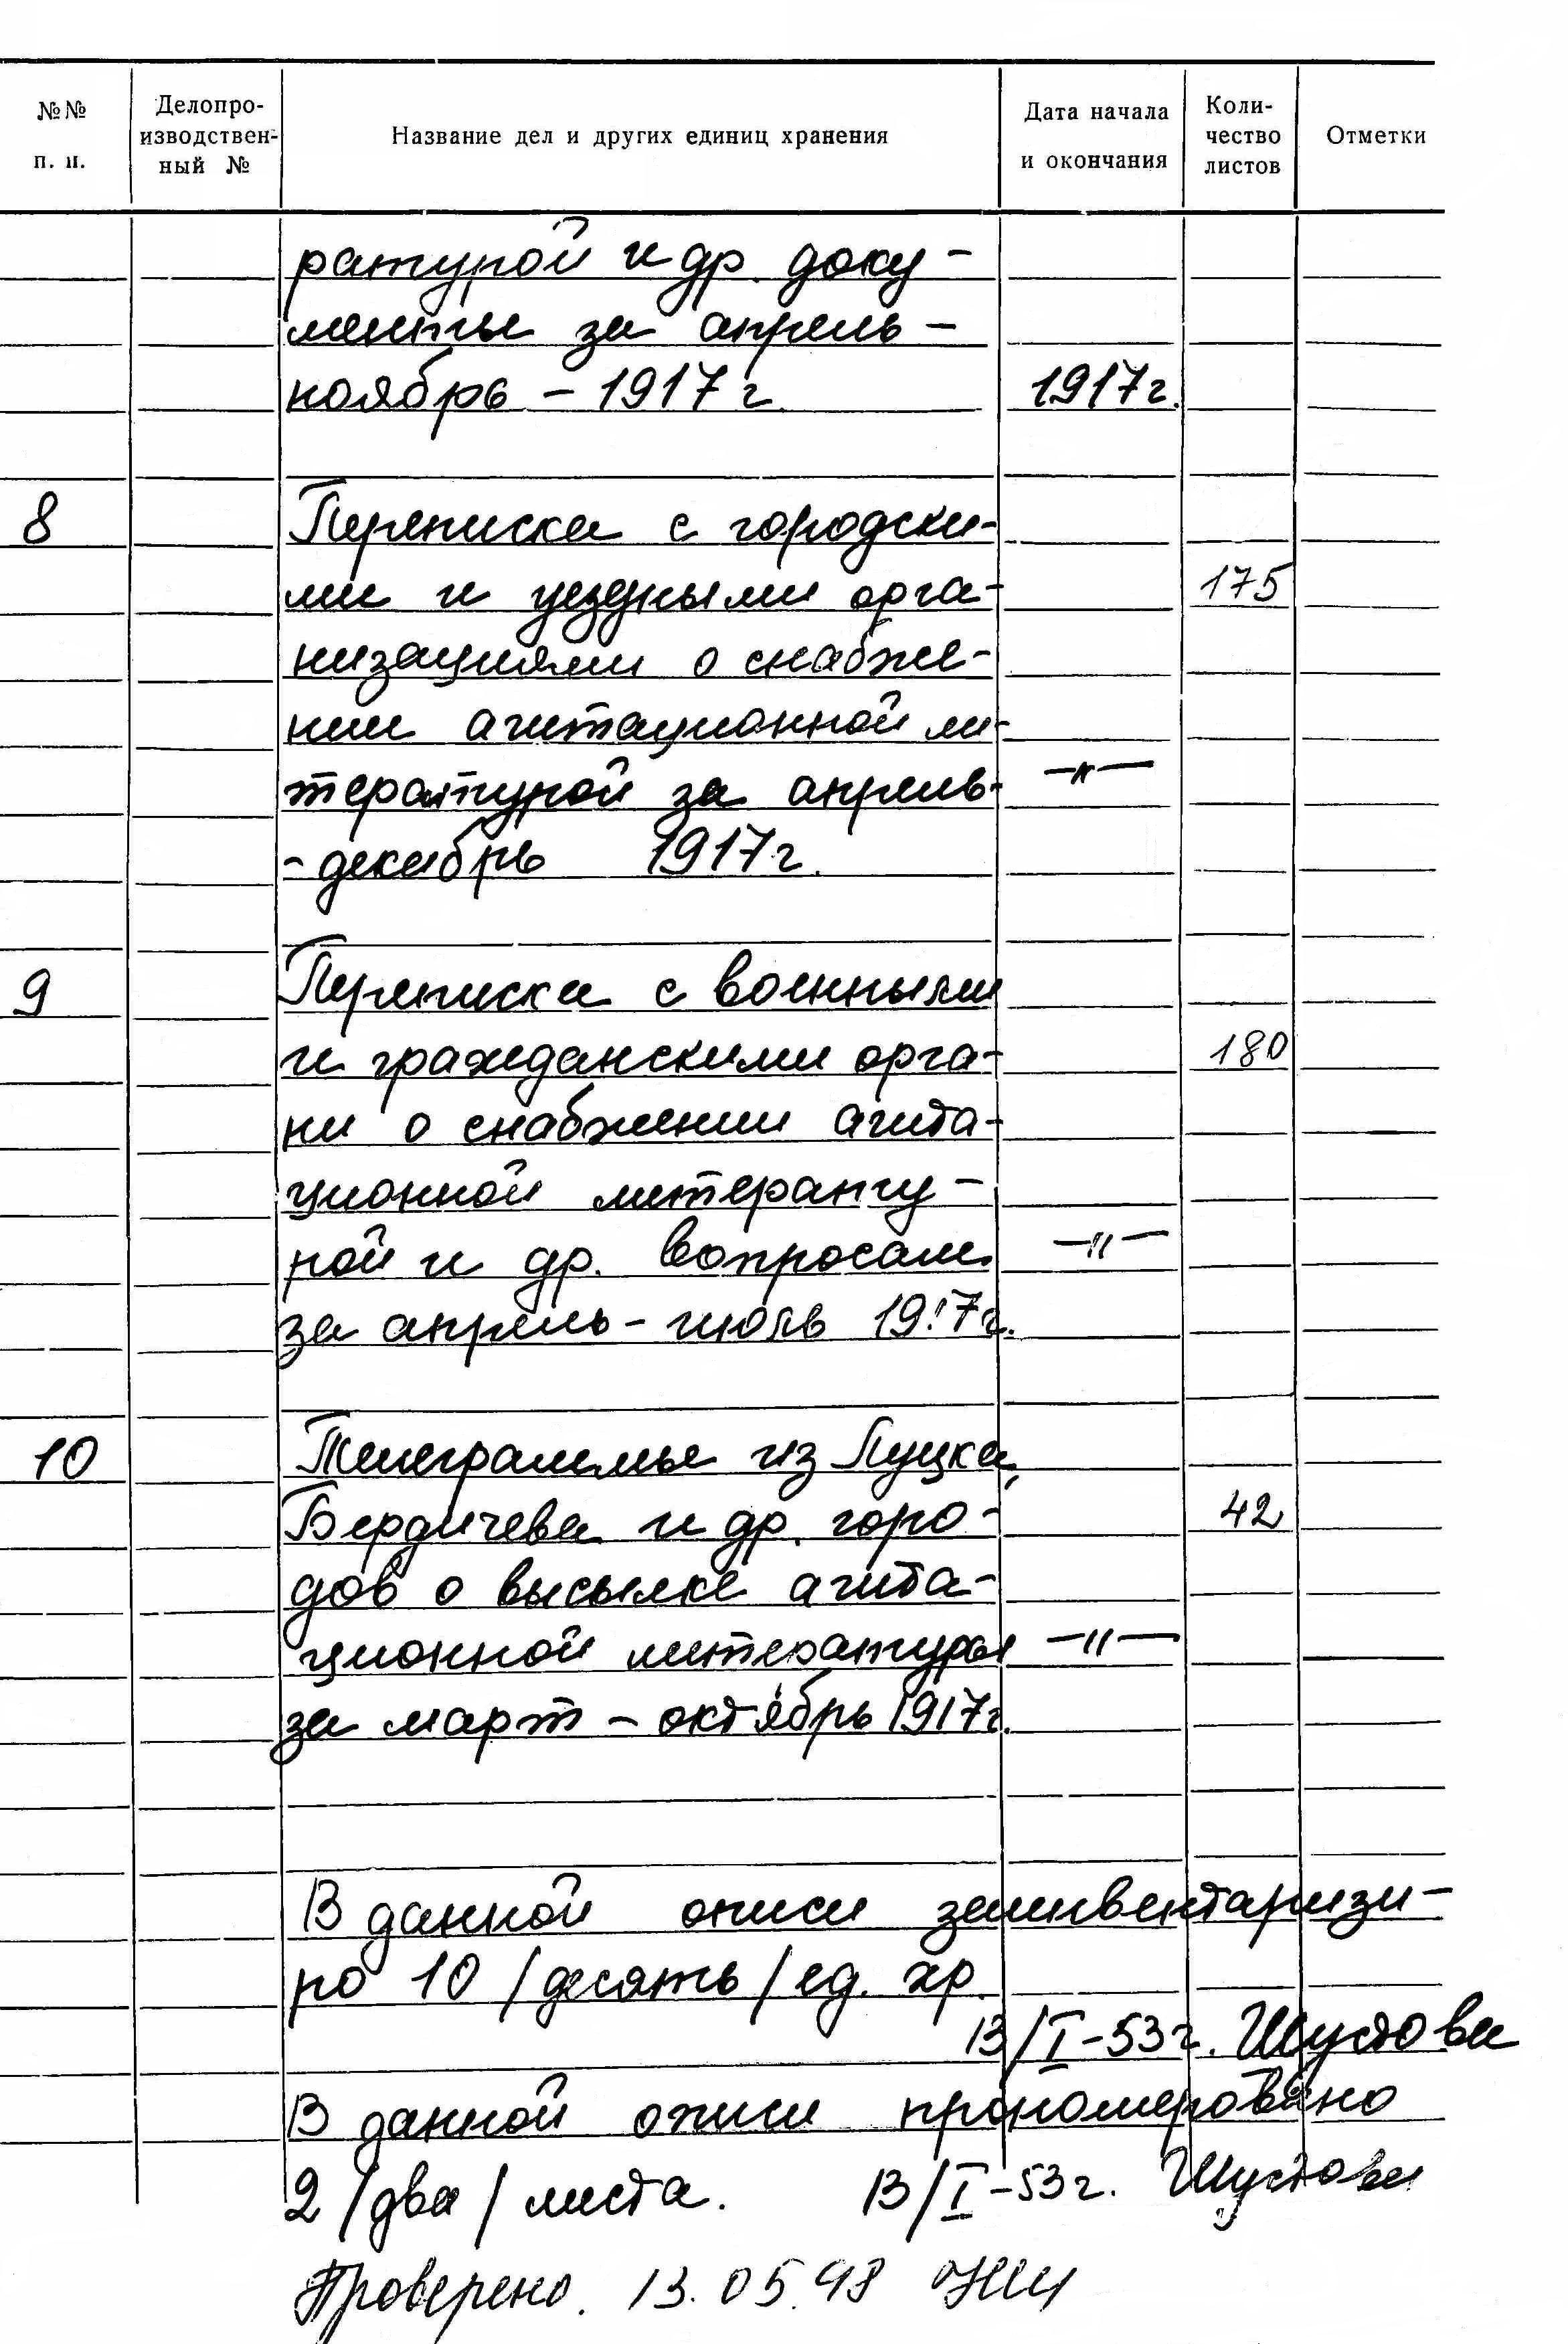 №№ п. п.
Делопро-
изводствен-
ный №
Название дел и других единиц хранения
Дата начала
и окончания
Коли-
чество
листов
Отметки
ратурой и др. доку-
менты за апрель-
ноябрь - 1917 г. 1917 г.
8 Переписка с городски-
ми и уездными орга- 175
низациями о снабже-
нии агитационной ли-
тературой за апрель- -"-
-декабрь 1917 г.
9 Переписка с военными
и гражданскими орга- 180
ни о снабжении агита-
ционной литерату-
рой и др. вопросам -"-
за апрель - июль 1917 г.
10 Телеграммы из Луцка,
Бердичева и др. горо- 42
дов о высылке агита-
ционной литературы -"-
за март - октябрь 1917 г.
В данной описи заинвентаризи-
ро 10 /десять/ ед. хр.
13/I-53 г. Шустова
В данной описи прономеровано
2 /два/ листа. 13/I-53 г. Шустова
Проверено. 13.05.98